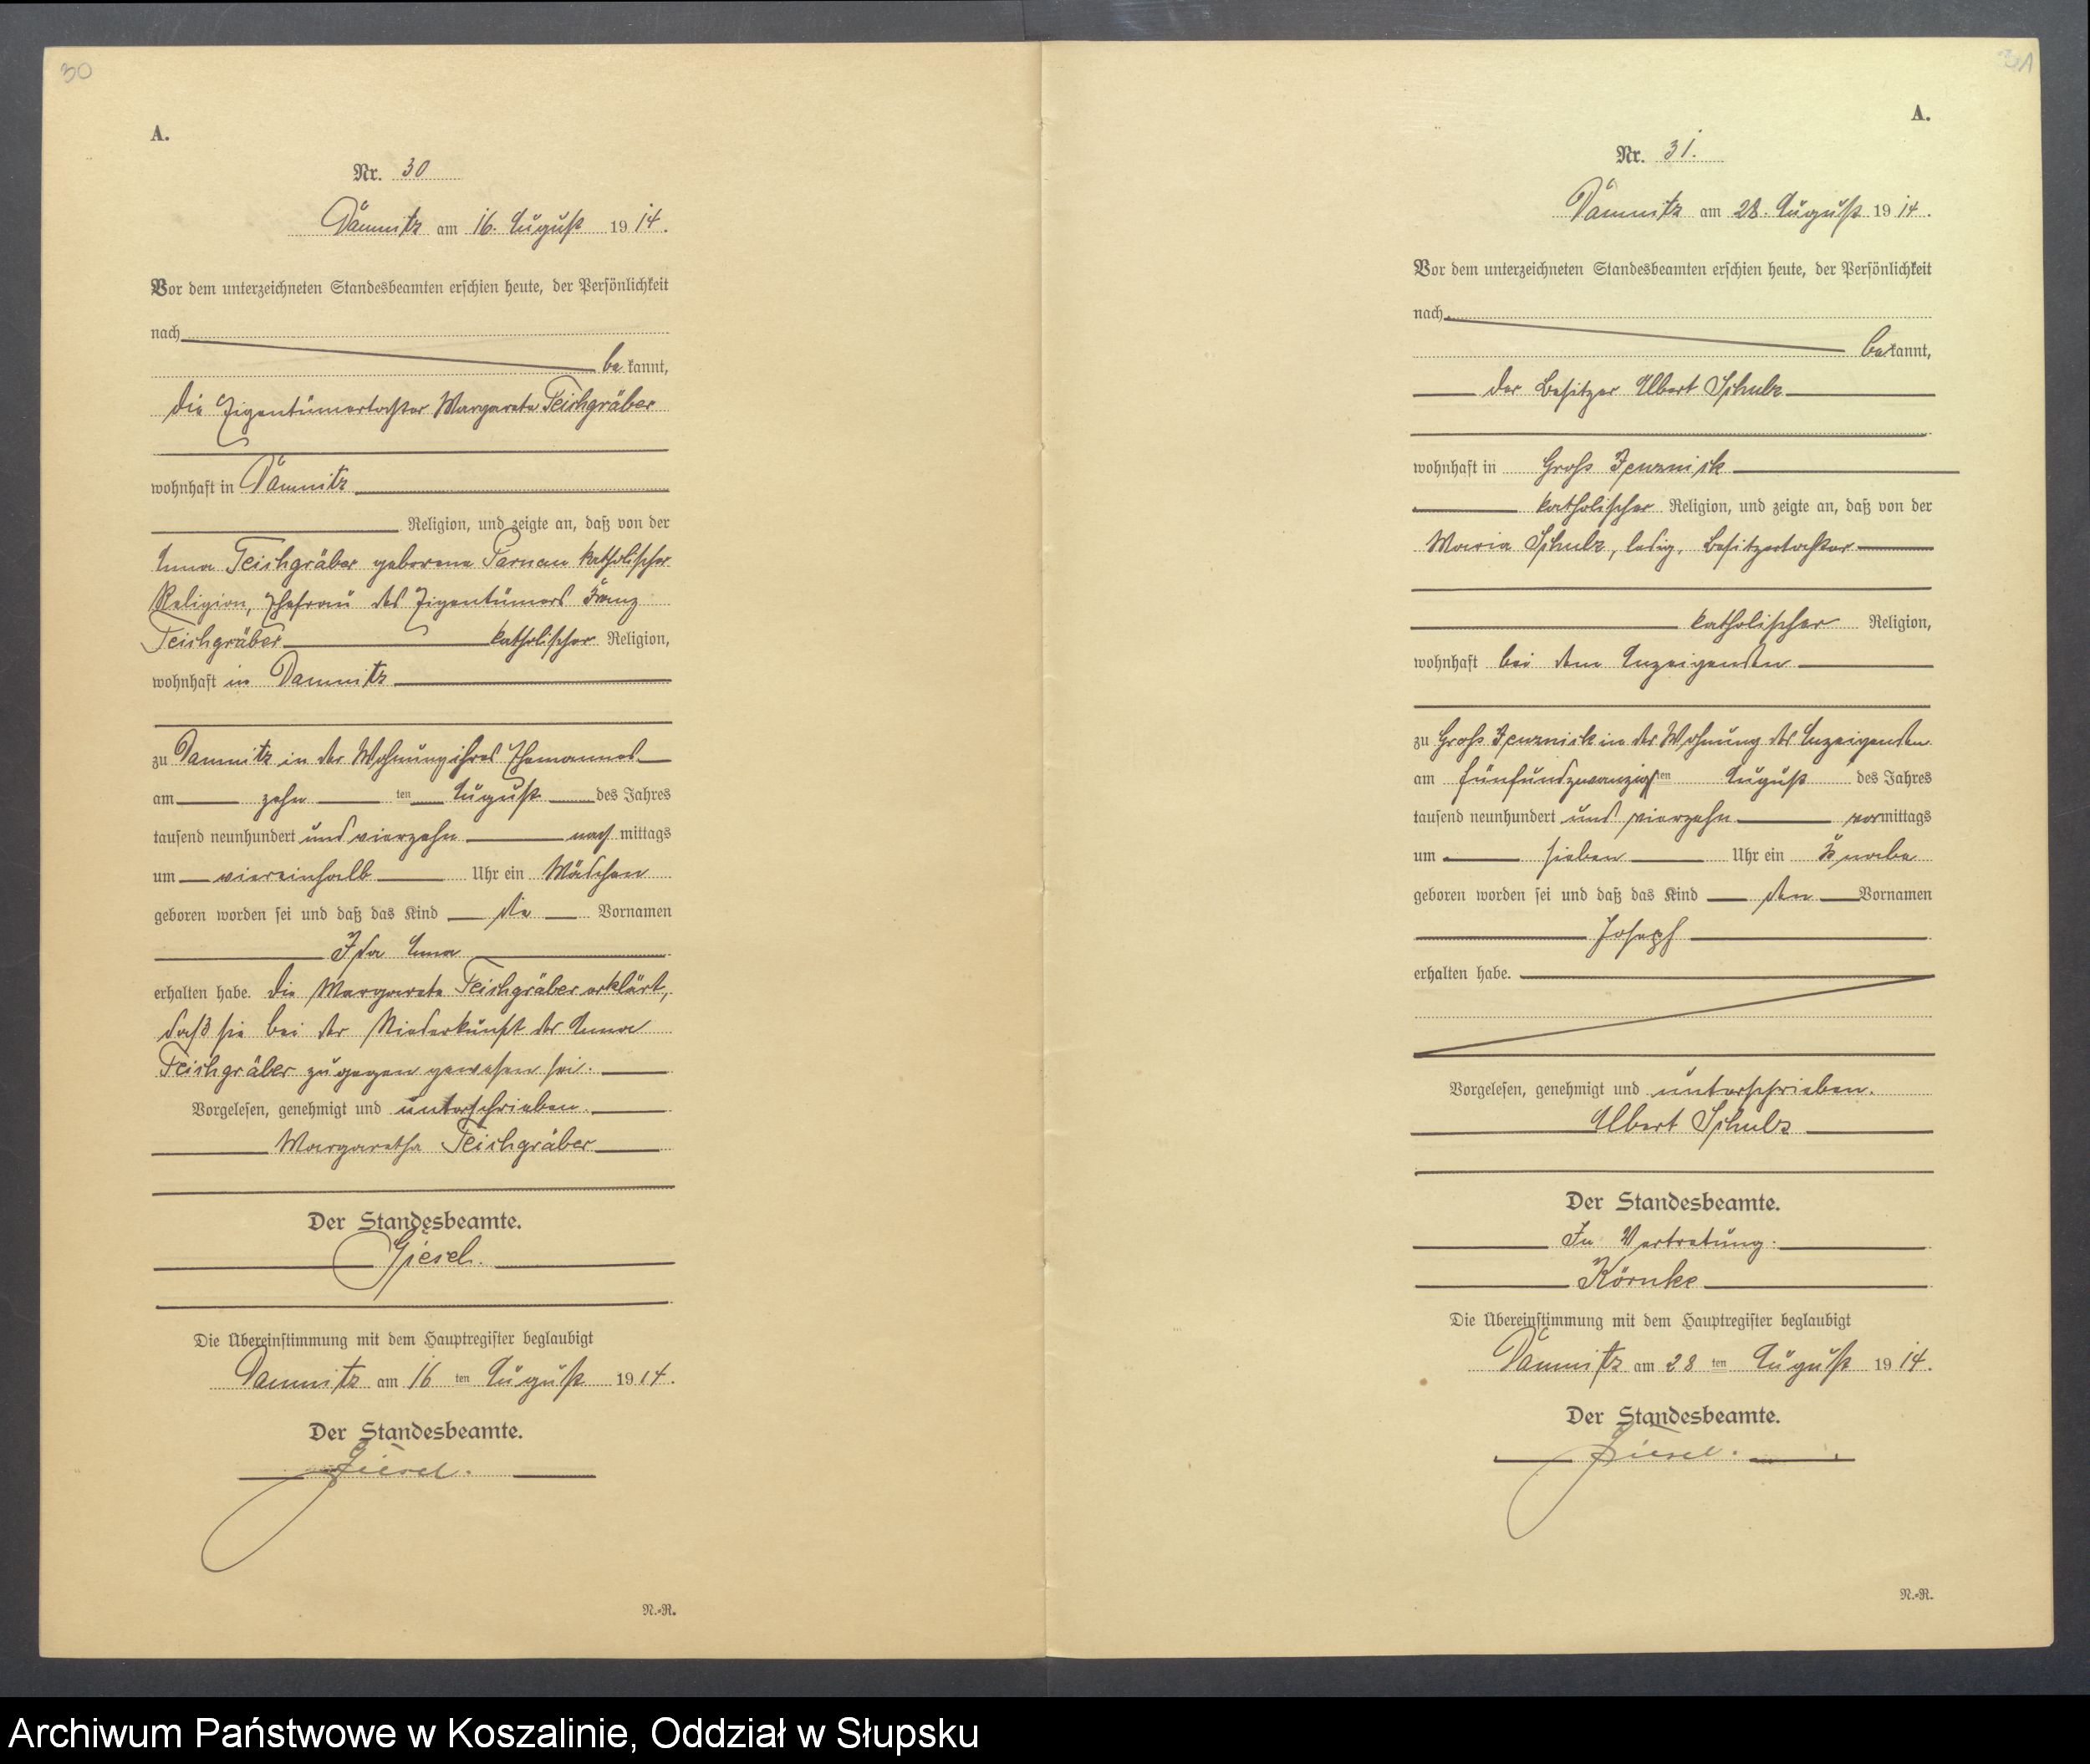 30
A.
Nr. 30
Damnitz am 16. August 1914.
Vor dem unterzeichneten Standesbeamten erschien heute, der Persönlichkeit
nach
bekannt,
die Eigentümertochter Margarete Teichgräber
wohnhaft in Damnitz
Religion, und zeigte an, daß von der
Anna Teichgräber geborene Parnau katholischer
Religion, Ehefrau des Eigentümers Franz
Teichgräber katholischer Religion,
wohnhaft in Damnitz
zu Damnitz in der Wohnung ihres Ehemannes
am zehn ten August des Jahres
tausend neunhundert und vierzehn nach mittags
um viereinhalb Uhr ein Mädchen
geboren worden sei und daß das Kind die Vornamen
Ida Anna
erhalten habe. Die Margarete Teichgräber erklärt,
daß sie bei der Niederkunft der Anna
Teichgräber zugegen gewesen sei.
Vorgelesen, genehmigt und unterschrieben.
Margaretha Teichgräber
Der Standesbeamte.
Giesel.
Die Übereinstimmung mit dem Hauptregister beglaubigt
Damnitz am 16 ten August 1914.
Der Standesbeamte.
Giesel.
N.-R.
31
A.
Nr. 31.
Damnitz am 28. August 1914.
Vor dem unterzeichneten Standesbeamten erschien heute, der Persönlichkeit
nach
bekannt,
der Besitzer Albert Schulz
wohnhaft in Groß Jenznick
katholischer Religion, und zeigte an, daß von der
Maria Schulz, ledig, Besitzertochter
katholischer Religion,
wohnhaft bei dem Anzeigenden
zu Groß Jenznick in der Wohnung des Anzeigenden
am fünfundzwanzigsten August des Jahres
tausend neunhundert und vierzehn vormittags
um sieben Uhr ein Knabe
geboren worden sei und daß das Kind den Vornamen
Joseph
erhalten habe.
Vorgelesen, genehmigt und unterschrieben.
Albert Schulz
Der Standesbeamte.
In Vertretung.
Körnke
Die Übereinstimmung mit dem Hauptregister beglaubigt
Damnitz am 28 ten August 1914.
Der Standesbeamte.
Giesel.
N.-R.
Archiwum Państwowe w Koszalinie, Oddział w Słupsku